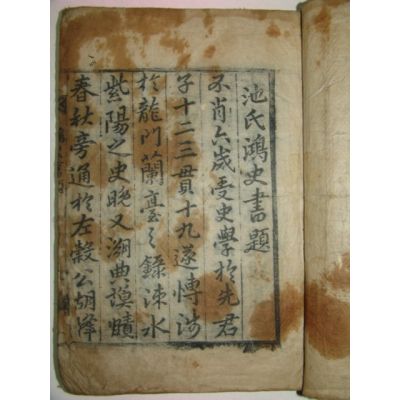 池氏鴻史書題
不肖六歲受史學於先君
子十二三貫十九遂慱涉
於龍門蘭臺之錄涑水
紫陽之史晚又溯典謨賾
春秋旁通於左穀公胡